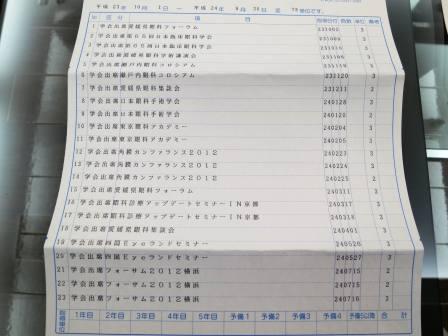 平成 23年 10月 1日 ～ 平成 24年 9月 30日 迄 単位です。
№ 区分 項目 取得日付 点数 単位 備考
1 学会出席愛媛眼科フォーラム 231002 3
2 学会出席第65回日本臨床眼科学会
3 学会出席第65回日本臨床眼科学会
4 学会出席愛媛県眼科学術講演会
5 学会出席瀬戸内眼科コロシアム
6 学会出席瀬戸内眼科コロシアム 231120 3
7 学会出席愛媛県眼科集談会 231211 2
8 学会出席日本眼科手術学会 240128 3
9 学会出席日本眼科手術学会
10 学会出席東京眼科アカデミー 240204 3
11 学会出席東京眼科アカデミー 240205 3
12 学会出席角膜カンファランス2012 3
13 学会出席角膜カンファランス2012 240224 3
14 学会出席角膜カンファランス2012 240225 2
15 学会出席愛媛眼科フォーラム 240311 3
16 学会出席眼科診療アップデートセミナーIN京都 240317 3
17 学会出席眼科診療アップデートセミナーIN京都 240318 3
18 学会出席愛媛県眼科集談会 3
19 学会出席四国Eyeランドセミナー 240526 3
20 学会出席四国Eyeランドセミナー 240527 3
21 学会出席フォーサム2012横浜 240715 2
22 学会出席フォーサム2012横浜 240715 3
23 学会出席フォーサム2012横浜 240716 3
取得単位 1年目 2年目 3年目 4年目 5年目 予備1 予備2 予備3 予備4 予備5以降 合計